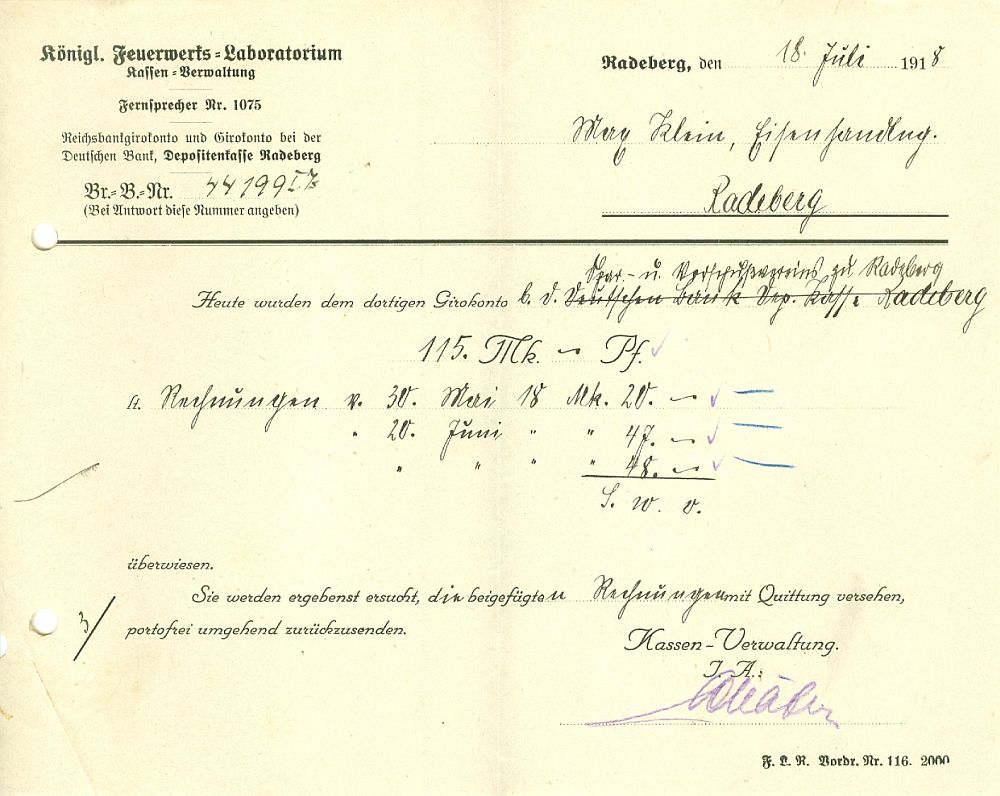 Königl. Feuerwerks-Laboratorium
Kassen-Verwaltung
Fernsprecher Nr. 1075
Reichsbankgirokonto und Girokonto bei der
Deutschen Bank, Depositenkasse Radeberg
Br.-B.-Nr. 44199
(Bei Antwort diese Nummer angeben)
Radeberg, den 18. Juli 1918
Max Klein, Eisenhandlng.
Radeberg
Spar- u. Vorschußvereins zu Radeberg
Heute wurden dem dortigen Girokonto b. d. Deutschen Bank Dep. Kasse Radeberg
115. Mk. – Pf.
lt. Rechnungen v. 30. Mai 18 Mk. 20. –
" 20. Juni " " 47. –
" " " " 48. –
S. w. o.
überwiesen.
Sie werden ergebenst ersucht, die beigefügten Rechnungen mit Quittung versehen,
portofrei umgehend zurückzusenden.
3/
Kassen-Verwaltung.
J. A.:
F. L. R. Vordr. Nr. 116. 2000